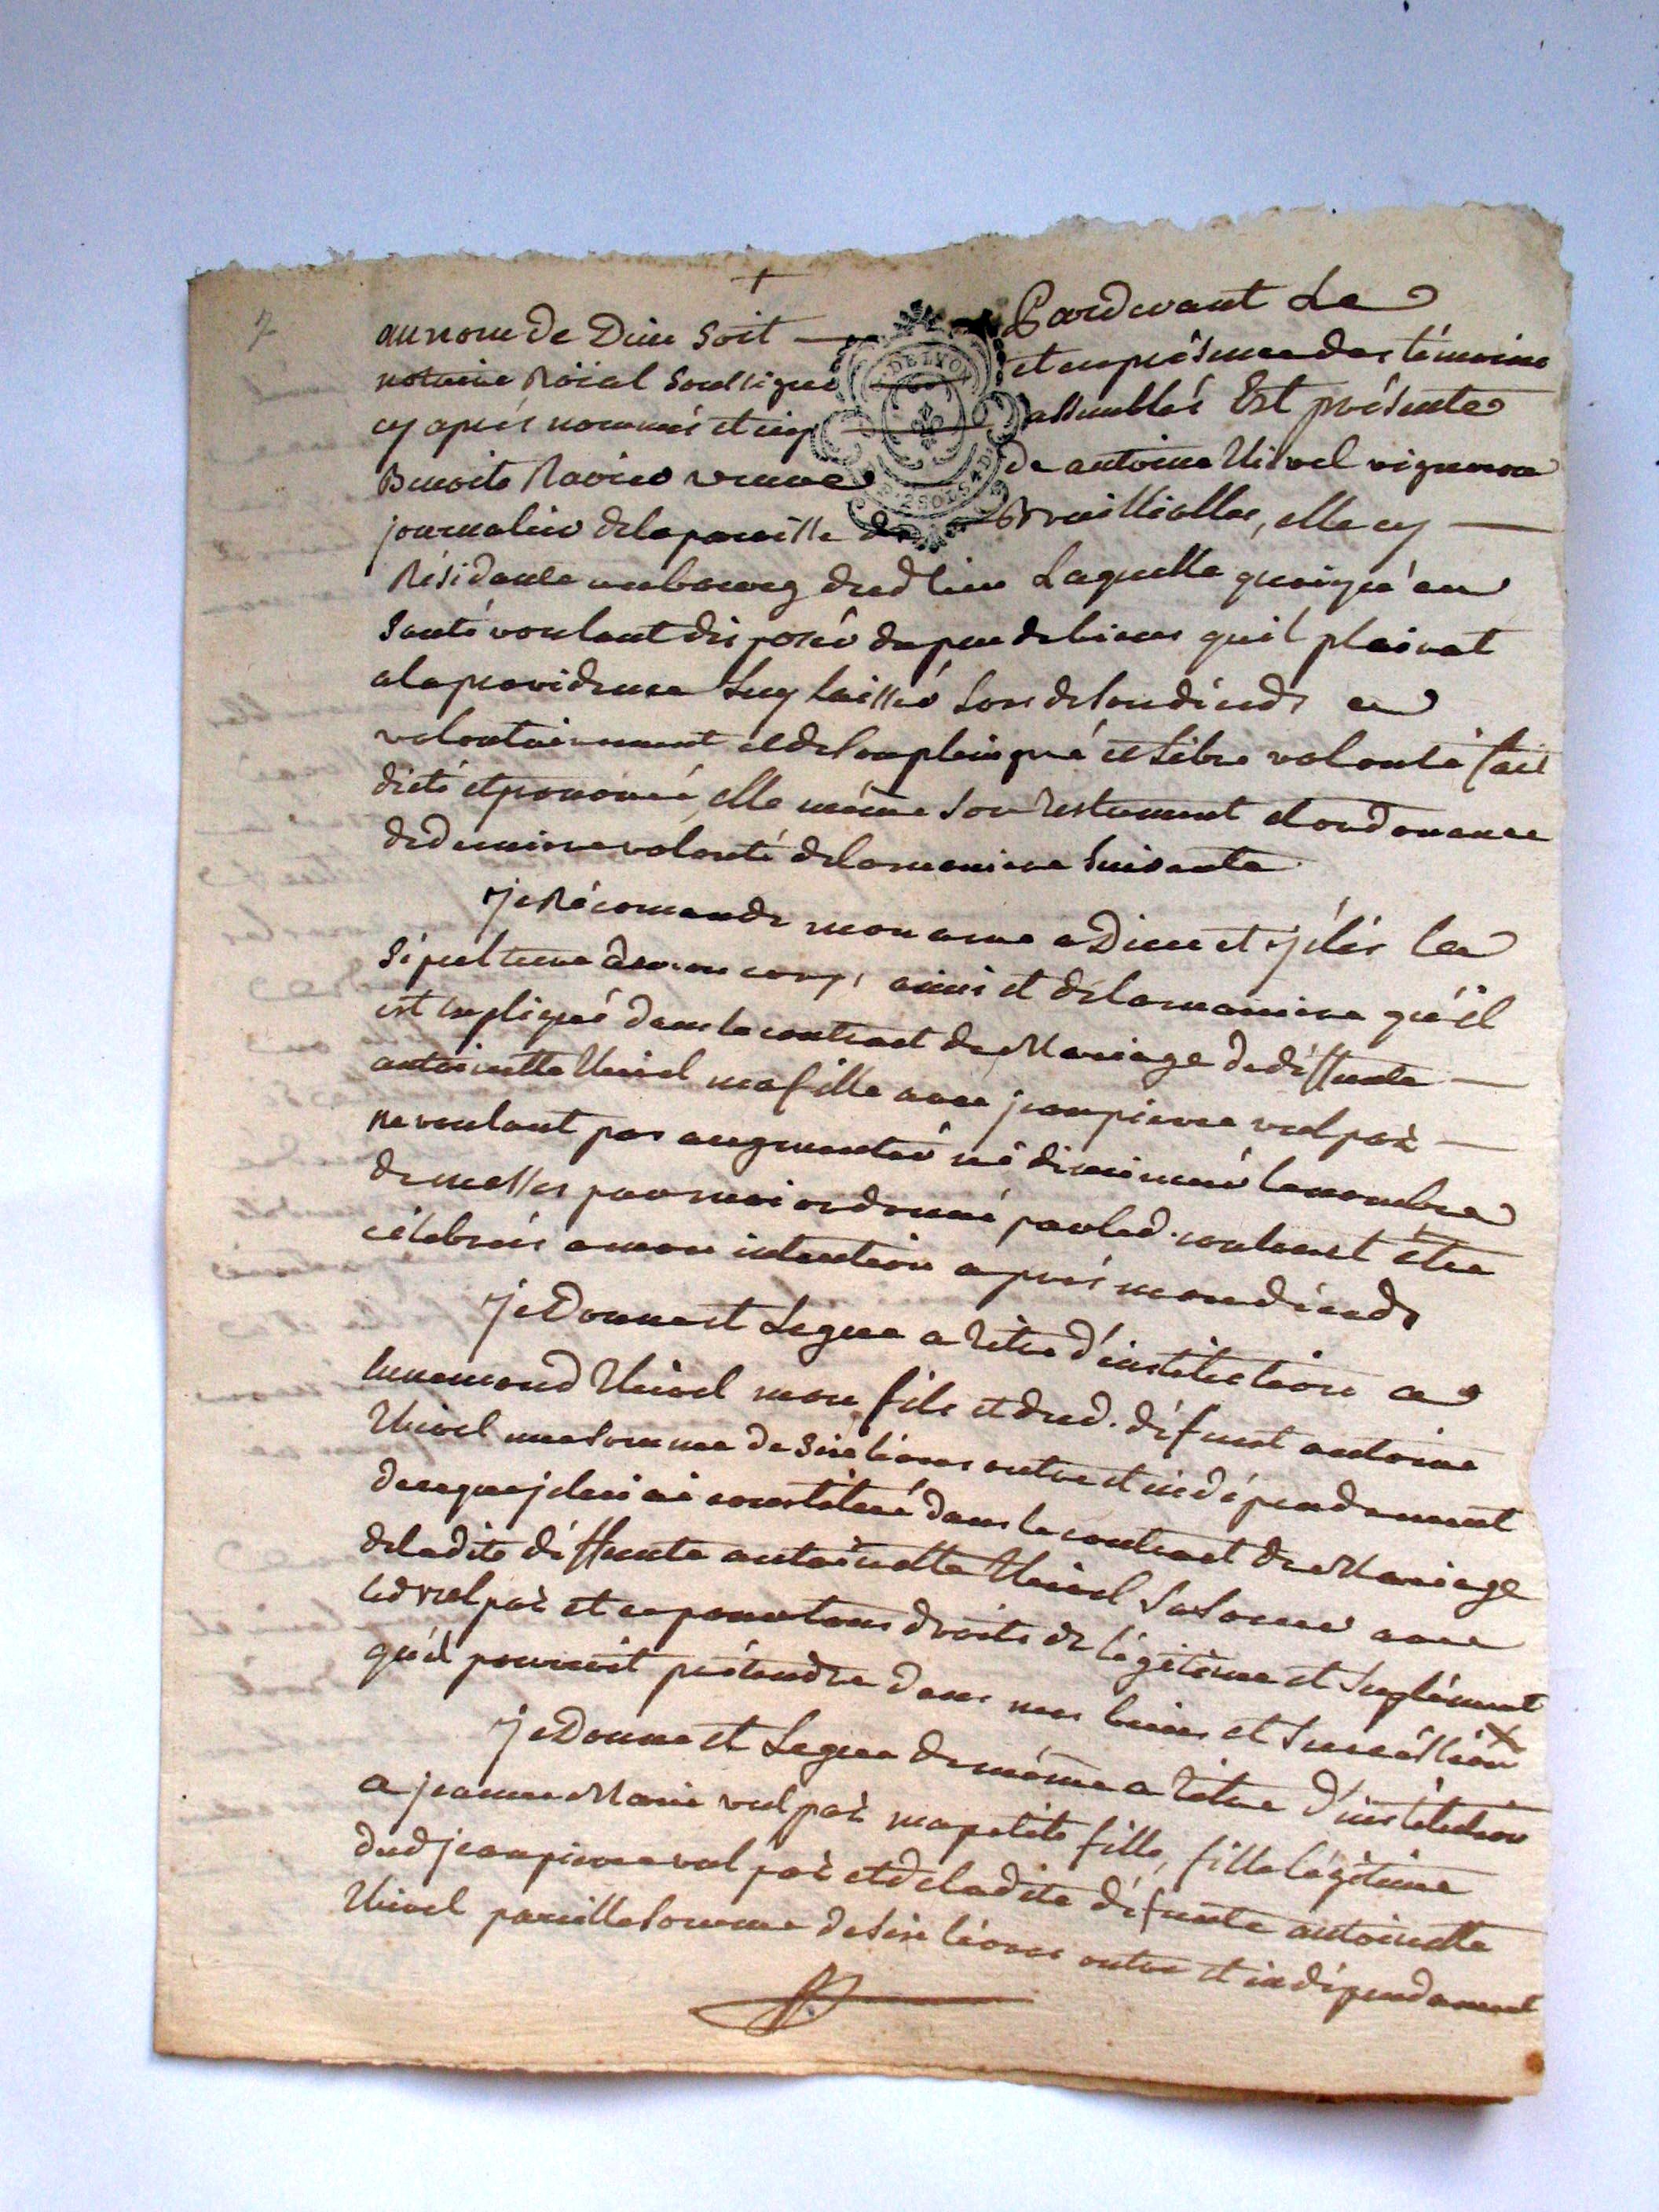 +
7
au nom de Dieu soit — Pardevant Le
notaire Roïal soussigné et en présence des témoins
cy aprés nommés et assemblés Est présente
Benoite Ravier veuve de antoine Unvel vigneron
journalier de la paroisse de Brulliolles, elle cy —
Résidante au bourg dud lieu Laquelle quoiqu'en
santé voulant disposér du peu de biens quil plairat
a la providence luy laissér lors de son décéds a
volontairement et de son plein gré et libre volonté fait
dicté et prononcé, elle même son testament et ordonance
de derniere volonté de la maniere suivante
Je Récomande mon ame a Dieu et j'élis la
sépulture de mon corps, ainsi et de la maniere qu'il
est expliqué dans le contract de Mariage de déffunte —
antoinette Unvel ma fille avec jean pierre vulpaz —
ne voulant pas augmentér né diminuér le nombre
de messes par moi ordonné par led. contract être
célébrés a mon intention aprés mon décéds
Je Donne et Legue a titre d'institution a
Ennemond Unvel mon fils et dud. défunt antoine
Unvel une somme de six livres outre et indépendament
de ce que je lui ai constitué dans le contract de Mariage
de ladite déffunte antoinette Unvel sa soeur avec
led vulpaz et ce pour tous droits de légitime et suplément
qu'il pourroit prétendre dans mes biens et succéssion x
Je Donne et Legue de même a titre d'institution
a jeanne Marie vulpaz ma petite fille, fille légitime
dud jean pierre vulpaz et de ladite défunte antoinette
Unvel pareille somme de six livres outre et indépendament
DE LYON
2 SOLS 4 D